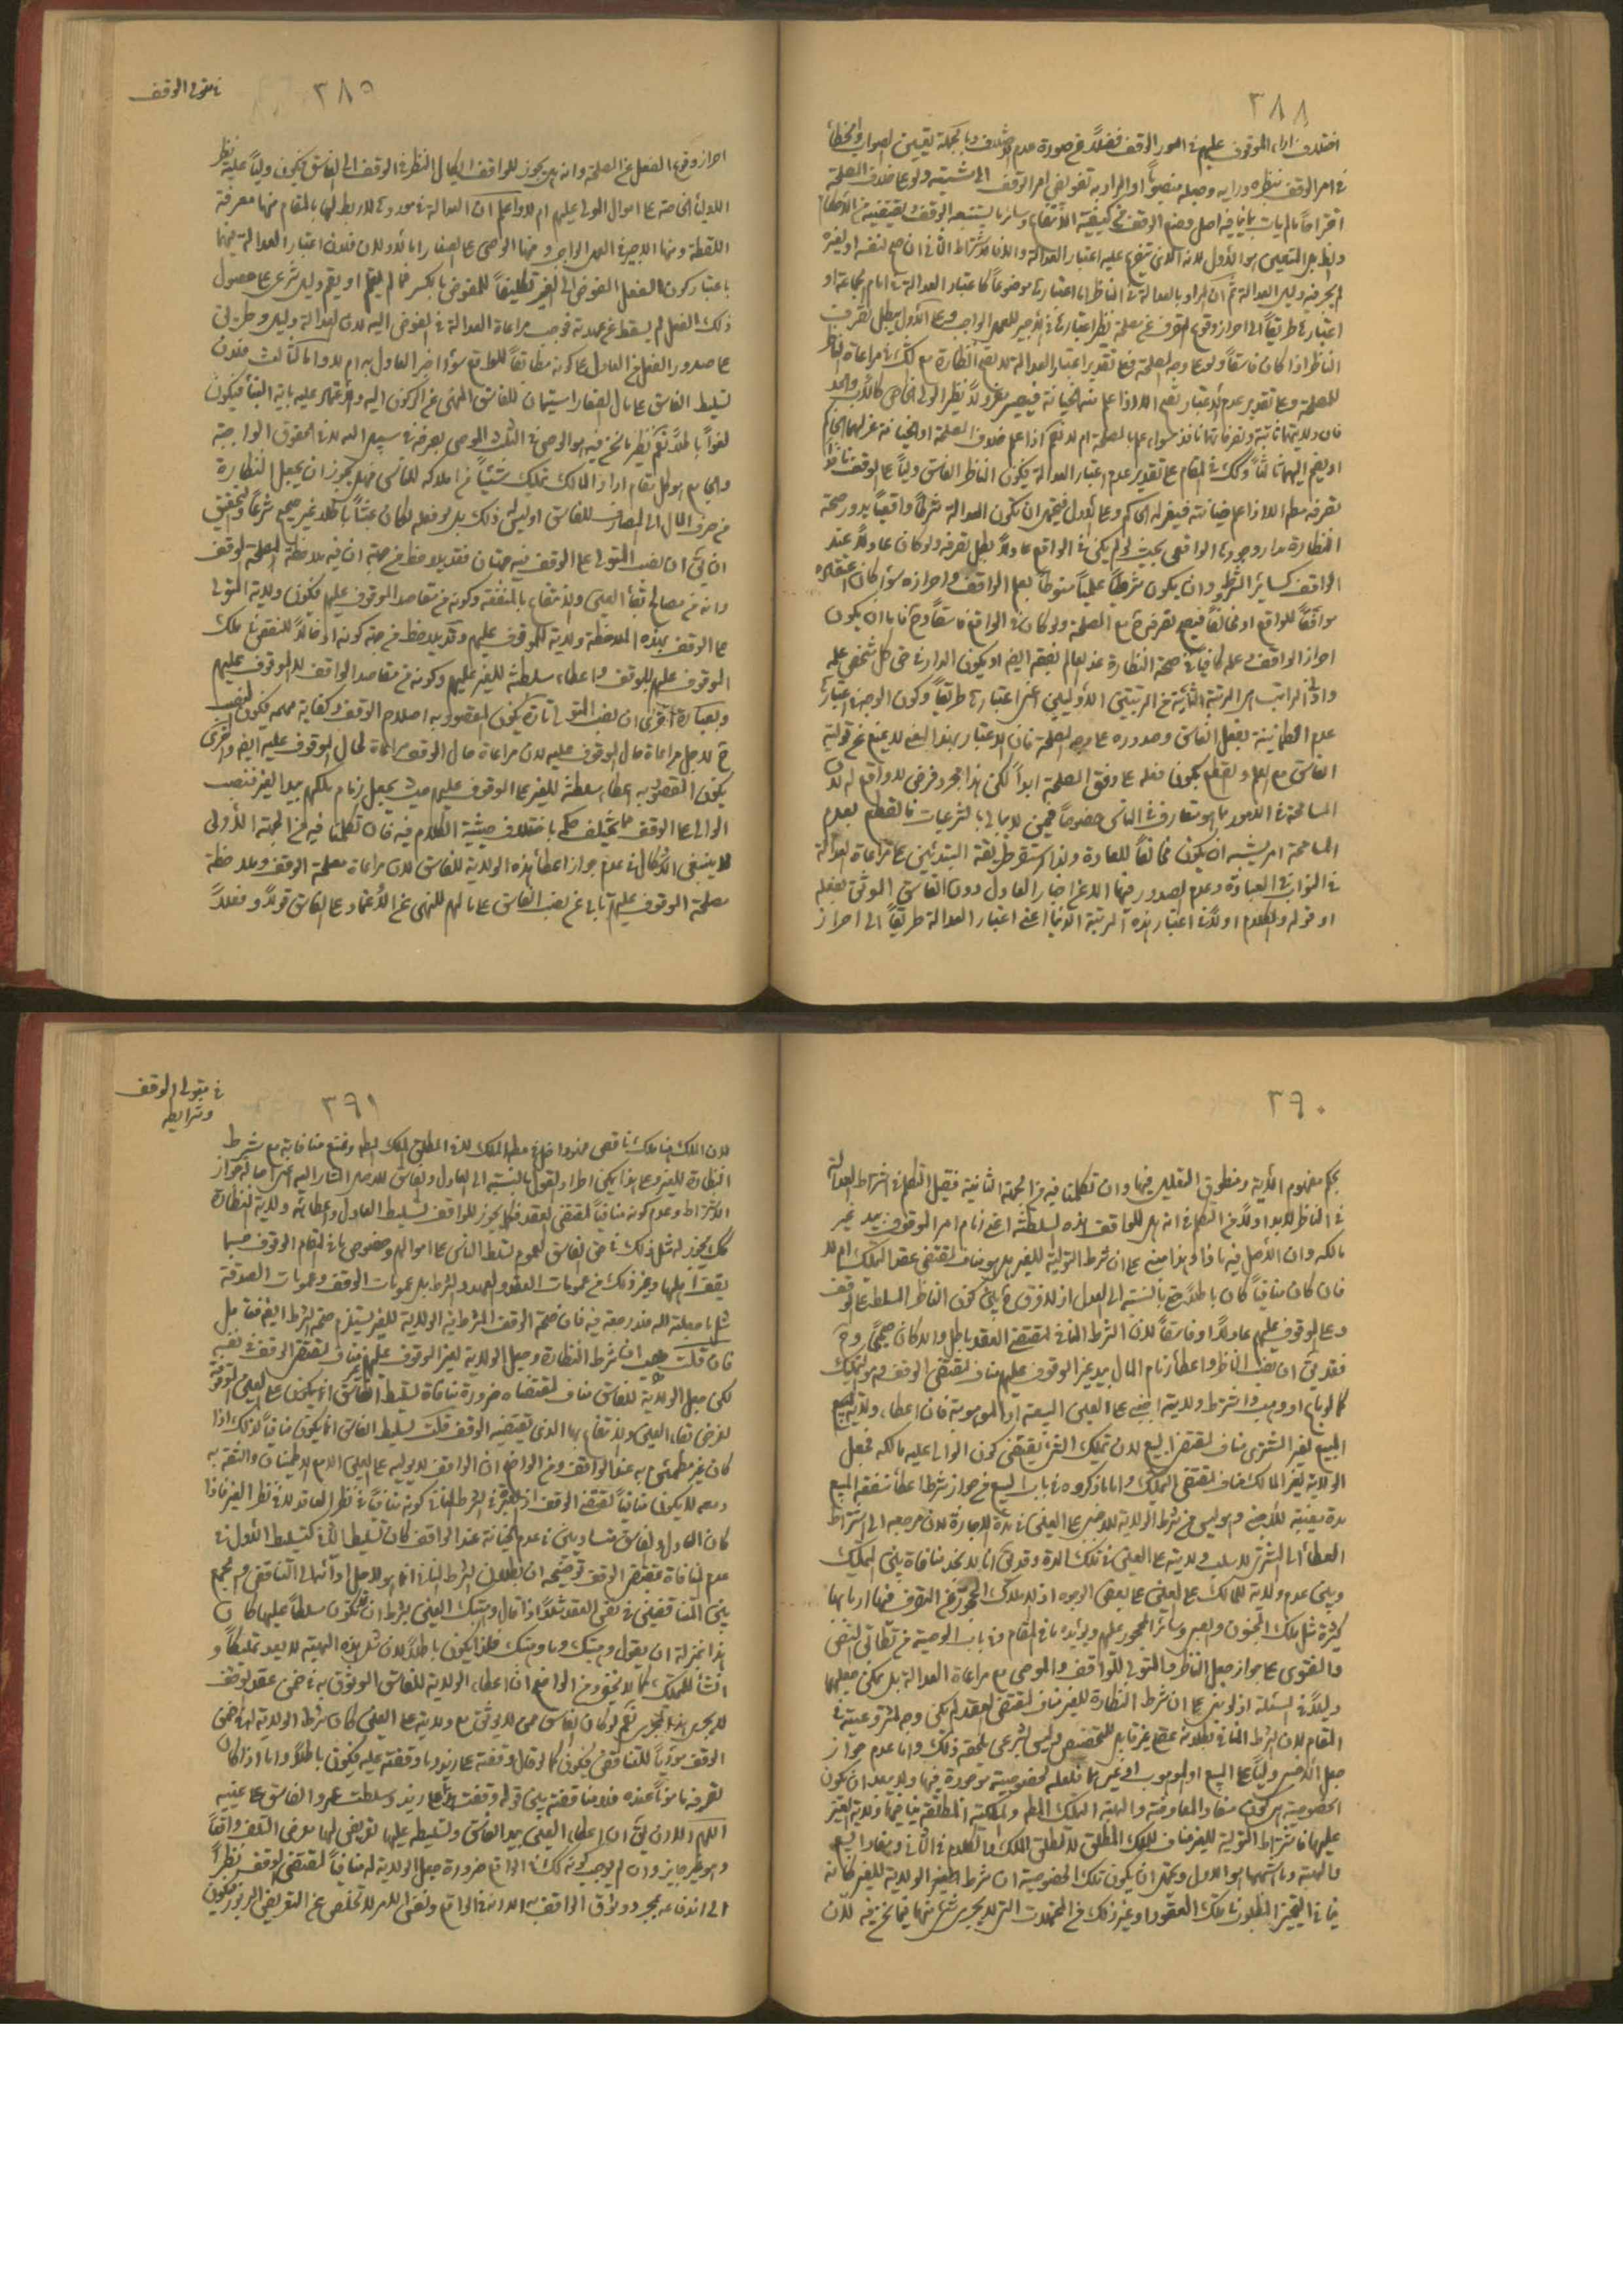 ٣٨٨
اختلاف اراء الموقوف عليهم في امور الوقف فضلاً عن صورة عدم الاختلاف وبالجملة تعيين الصواب والخطأ
في امر الوقف بنظره ورايه وجعله منصوباً او المراد به تفويض امر الوقف الى مشيته ولو على خلاف المصلحة
لم يجر فيه دليل العدالة ثم ان المراد بالعدالة في الناظر اما اعتبارها موضوعاً كاعتبار العدالة في امام الجماعة او
اعتبارها طريقاً الى احراز وقوع التصرف عن مصلحة نظير اعتبارها في الاجير للعمل الواجب وعلى الاول يبطل تصرف
الناظر اذا كان فاسقاً ولو على وجه المصلحة
للمصلحة وعلى تقدير عدم الاعتبار يصح الا اذا علم منه الخيانة
فان ولايتها ثابتة وتصرفاتها نافذ سواء علم بالمصلحة ام لا نعم اذا علم خلاف المصلحة او الخيانة عزلهما الحاكم
او يضم اليهما ثالثاً وكك في المقام على تقدير عدم اعتبار العدالة يكون الناظر الفاسق ولياً على الوقف نافذ
تصرفه مطم الا اذا علم خيانته فيعزله الحاكم وعلى الاول فيحتمل ان تكون العدالة شرطاً واقعياً يدور صحة
النظارة مدار وجودها الواقعي بحيث لو لم يكن في الواقع عادلاً بطل تصرفه ولو كان عادلاً عند
الواقف كساير الشروط وان يكون شرطاً علمياً منوطاً بعلم الواقف واحرازه سواء كان اعتقاده
موافقاً للواقع او مخالفاً فيصح تصرفه مع المصلحة ولو كان في الواقع فاسقاً وح فاما ان يكون
احراز الواقف وعلمه كافياً في صحة النظارة عند العالم بفسقه ايضا او يكون المدار في حق كل شخص علمه
عدم الطمانينة بفعل الفاسق وصدوره على وجه المصلحة فان الاعتبار بهذا المعنى لا يمنع عن تولية
الفاسق مع العلم والقطع بكون فعله على وفق المصلحة ابداً لكن هذا مجرد فرض لا واقع له لان
المسامحة في الامور مما هو متعارف في الناس خصوصاً فيمن لا يبالي بالشرعيات فالقطع بعدم
المسامحة امر يشبه ان يكون مخالفاً للعادة ولذا استقر طريقة المتدينين على مراعاة العدالة
في النواب في العبادة وعدم الصدور فيها الا عن اخبار العادل دون الفاسق الموثق بفعله
او قوله والكلام اولاً في اعتبار هذه المرتبة الدنيا اعني اعتبار العدالة طريقاً الى احراز
٣٨٩
في متولي الوقف
احراز وقوع الفعل عن المصلحة وانه هل يجوز للواقف ايكال النظر في الوقف الى الفاسق فيكون ولياً عليه نظير
الاولياء الخاصة على اموال المولى عليهم ام لا واعلم ان العدالة في موردها لا ربط لها بالمقام منها معرفة
اللقطة ومنها الاجير في العمل الواجب ومنها الوصي على الصغار اما الاولان فلان اعتبار العدالة فيهما
باعتبار كون الفعل المفوض الى الغير تكليفاً للمفوض بالكسر فما لم يعلم او يقم دليل شرعي على حصول
ذلك الفعل لم يسقط عن عهدته فوجب مراعاة العدالة في المفوض اليه لان العدالة دليل وطريق
على صدور الفعل من العادل على كونه مطابقاً للواقع سواء اخبر العادل به ام لا واما الثالث فلان
تسليط الفاسق على مال الصغار استيمان للفاسق المنهي عن الركون اليه والاعتماد عليه باية النبأ فيكون
لغواً باطلاً نعم نظير ما نحن فيه هو الوصي في الثلث الموصى بصرفه في سبيل الله لا في الحقوق الواجبة
والجامع هو كل مقام اراد المالك تمليك شيئاً من املاكه للناس فهل يجوز ان يجعل النظارة
في صرف المال الى المصارف للفاسق اوليس له ذلك بل لو فعله لكان عبثاً باطلاً غير صحيح شرعاً والتحقيق
ان يق ان نصب المتولي على الوقف فيه جهتان فقد يلاحظ من جهة ان فيه ملاحظة لمصلحة الوقف
وانه من مصالح بقاء العين والانتفاع بالمنفعة وكونه من مقاصد الموقوف عليهم فيكون ولاية المتولي
على الوقف بهذه الملاحظة ولاية للموقوف عليهم وقد يلاحظ من جهة كونه ادخالاً للنقص في ملك
الموقوف عليهم للوقف واعطاء سلطنة للغير عليهم وكونه من مقاصد الواقف لا الموقوف عليهم
وبعبارة اخرى ان نصب المتولي تارة يكون المقصود به اصلاح الوقف وكفاية مهمه فيكون النصب
ح لاجل مراعاة حال الموقوف عليه لان مراعاة حال الوقف مراعاة لحال الموقوف عليه ايضا واخرى
يكون المقصود به اعطاء سلطنة للغير على الموقوف عليهم حيث يجعل زمام ملكهم بيد الغير فنصب
الوالي على الوقف مما يختلف حكمه باختلاف حيثية الكلام فيه فان تكلمنا فيه من الجهة الاولى
فلا ينبغي الاشكال في عدم جواز اعطاء هذه الولاية للفاسق لان مراعاة مصلحة الوقف وملاحظة
مصلحة الموقوف عليهم آبية عن نصب الفاسق على مالهم للنهي عن الاعتماد على الفاسق قولاً وفعلاً
٣٩٠
بحكم مفهوم الآية ومنطوق التعليل فيها وان تكلمنا فيه من الجهة الثانية فقبل التكلم في اشتراط العدالة
في الناظر لابد اولاً من التكلم في انه هل للواقف هذه السلطنة اعني زمام امر الموقوف بيد غير
مالكه وان الاصل فيه ماذا وهذا مبني على ان شرط التولية للغير هل هو مناف لمقتضى عقد التمليك ام لا
فان كان منافياً كان باطلاً حتى بالنسبة الى العدل اذ لا فرق ح بين كون الناظر المسلط على الوقف
وعلى الموقوف عليهم عادلاً او فاسقاً لان الشرط المنافي لمقتضى العقد باطل والا كان صحيحاً وح
فقد يق ان نصب الناظر واعطاء زمام المال بيد غير الموقوف عليهم مناف لمقتضى الوقف وهو التمليك
كما لو باع او وهب واشترط ولاية اجنبي على العين المبيعة او الموهوبة فان اعطاء ولاية
المبيع لغير المشتري مناف لمقتضى البيع لان تمليك المشتري يقتضي كون الوالي عليه مالكه فجعل
الولاية لغير المالك مناف لمقتضى التمليك واما ما ذكروه في باب البيع من جواز شرط اعطاء منفعة المبيع
مدة معينة للاجنبي فهو ليس من شرط الولاية للاجنبي على العين في مدة الاجارة لان مرجعه الى اشتراط
وبين عدم ولاية للمالك على العين على بعض الوجوه اذ الاملاك المحجور عن التصرف فيها اربابها
كثيرة مثل ملك المجنون والصبي وسائر المحجور عليهم ويؤيده ما في المقام وفي باب الوصية من تطابق النص
والفتوى على جواز جعل الناظر والمتولي للواقف والموصي مع مراعاة العدالة بل يمكن جعلهما
دليلاً في المسئلة اذ لو بني على ان شرط النظارة للغير مناف لمقتضى العقد لم يكن وجه لمشروعيته في
المقام لان الشرط المنافي بطلانه عقلي غير قابل للتخصيص وليس الشرعي يلحقه ذلك واما عدم جواز
جعل الاجنبي ولياً على المبيع او الموهوب او غيرهما فلعله لخصوصية موجودة فيها ولا يبعد ان يكون
الخصوصية هي كون مفاد المعاوضة والهبة التمليك المطلق والملكية المطلقة ينافيها ولاية الغير
عليها فاشتراط التولية للغير مناف للملك المطلق لا لمطلق الملك والكلام في الثاني ومفاد البيع
والهبة وما اشبههما هو الاول ويحتمل ان يكون تلك الخصوصية ان شرط الولاية للغير كانه
ينافي التنجيز المطلوب في تلك العقود او غير ذلك من المحتملات التي لا يجري شيء منها فيما نحن فيه لان
٣٩١
في متولي الوقف
وشرايطه
النظارة للغير وعلى هذا يمكن اطراد القول بالنسبة الى العادل والفاسق للاصل المشار اليه اعني اصالة جواز
الاشتراط وعدم كونه منافياً لمقتضى العقد فكما يجوز للواقف تسليط العادل واعطائه ولاية النظارة
كك يجوز له مثل ذلك في حق الفاسق لعموم تسلط الناس على اموالهم وخصوص ما في المقام الوقوف حسبما
يقفها اهلها وغير ذلك من عمومات العقود والعهود والشرط بل عمومات الوقف وعمومات الصدقة
فان قلت هب ان شرط النظارة وجعل الولاية لغير الموقوف عليهم غير مناف لمقتضى الوقف في نفسه
لكن جعل الولاية للفاسق مناف لمقتضاه ضرورة منافاة تسليط الفاسق
لغرض بقاء العين والانتفاع بها الذي يقتضيه الوقف قلت تسليط الفاسق انما يكون منافياً لذلك اذا
كان غير مطمئن به عند الواقف ومن الواضح ان الواقف لا يوليه على العين الا مع الاطمينان والثقة به
ومعه لا يكون منافياً لمقتضى الوقف اذ العبرة في الشرط المنافي كونه منافياً في نظر العاقد لا في نظر الغير فاذا
كان العادل والفاسق متساويين في عدم الخيانة عند الواقف كان تسليط الثاني كتسليط الاول في
عدم المنافاة لمقتضى الوقف توضيحه ان بطلان الشرط المنافي انما هو لاجل ادائه الى التناقض والجمع
بين المتناقضين في نفس العقد مثلاً اذا قال وهبتك العين بشرط ان لا تكون مسلطاً عليها كان
هذا بمنزلة ان يقول وهبتك وما وهبتك فلذا يكون باطلاً لان مثل هذه الهبة لا يعد تمليكاً و
انشاء للملك كما لا يخفى ومن الواضح ان اعطاء الولاية للفاسق الموثوق به في ضمن عقد الوقف
لا يجري هذا المجرى نعم لو كان الفاسق ممن لا يوثق مع ولايته على العين كان شرط الولاية له في ضمن
الوقف مؤدياً للتناقض فيكون كما لو قال وقفته على زيد وما وقفته عليه فيكون باطلاً واما اذا كان
تصرفه مأموناً عنده فلا مناقضة بين قوله وقفت هذا على زيد وسلطت عمرو الفاسق على عينه
اللهم الا ان يق ان اعطاء العين بيد الفاسق وتسليطه عليها تعريض لها معرض التلف واقعاً
وهو غير جايز وان لم يوجب كونه كك في الواقع ضرورة جعل الولاية له منافياً لمقتضى الوقف نظراً